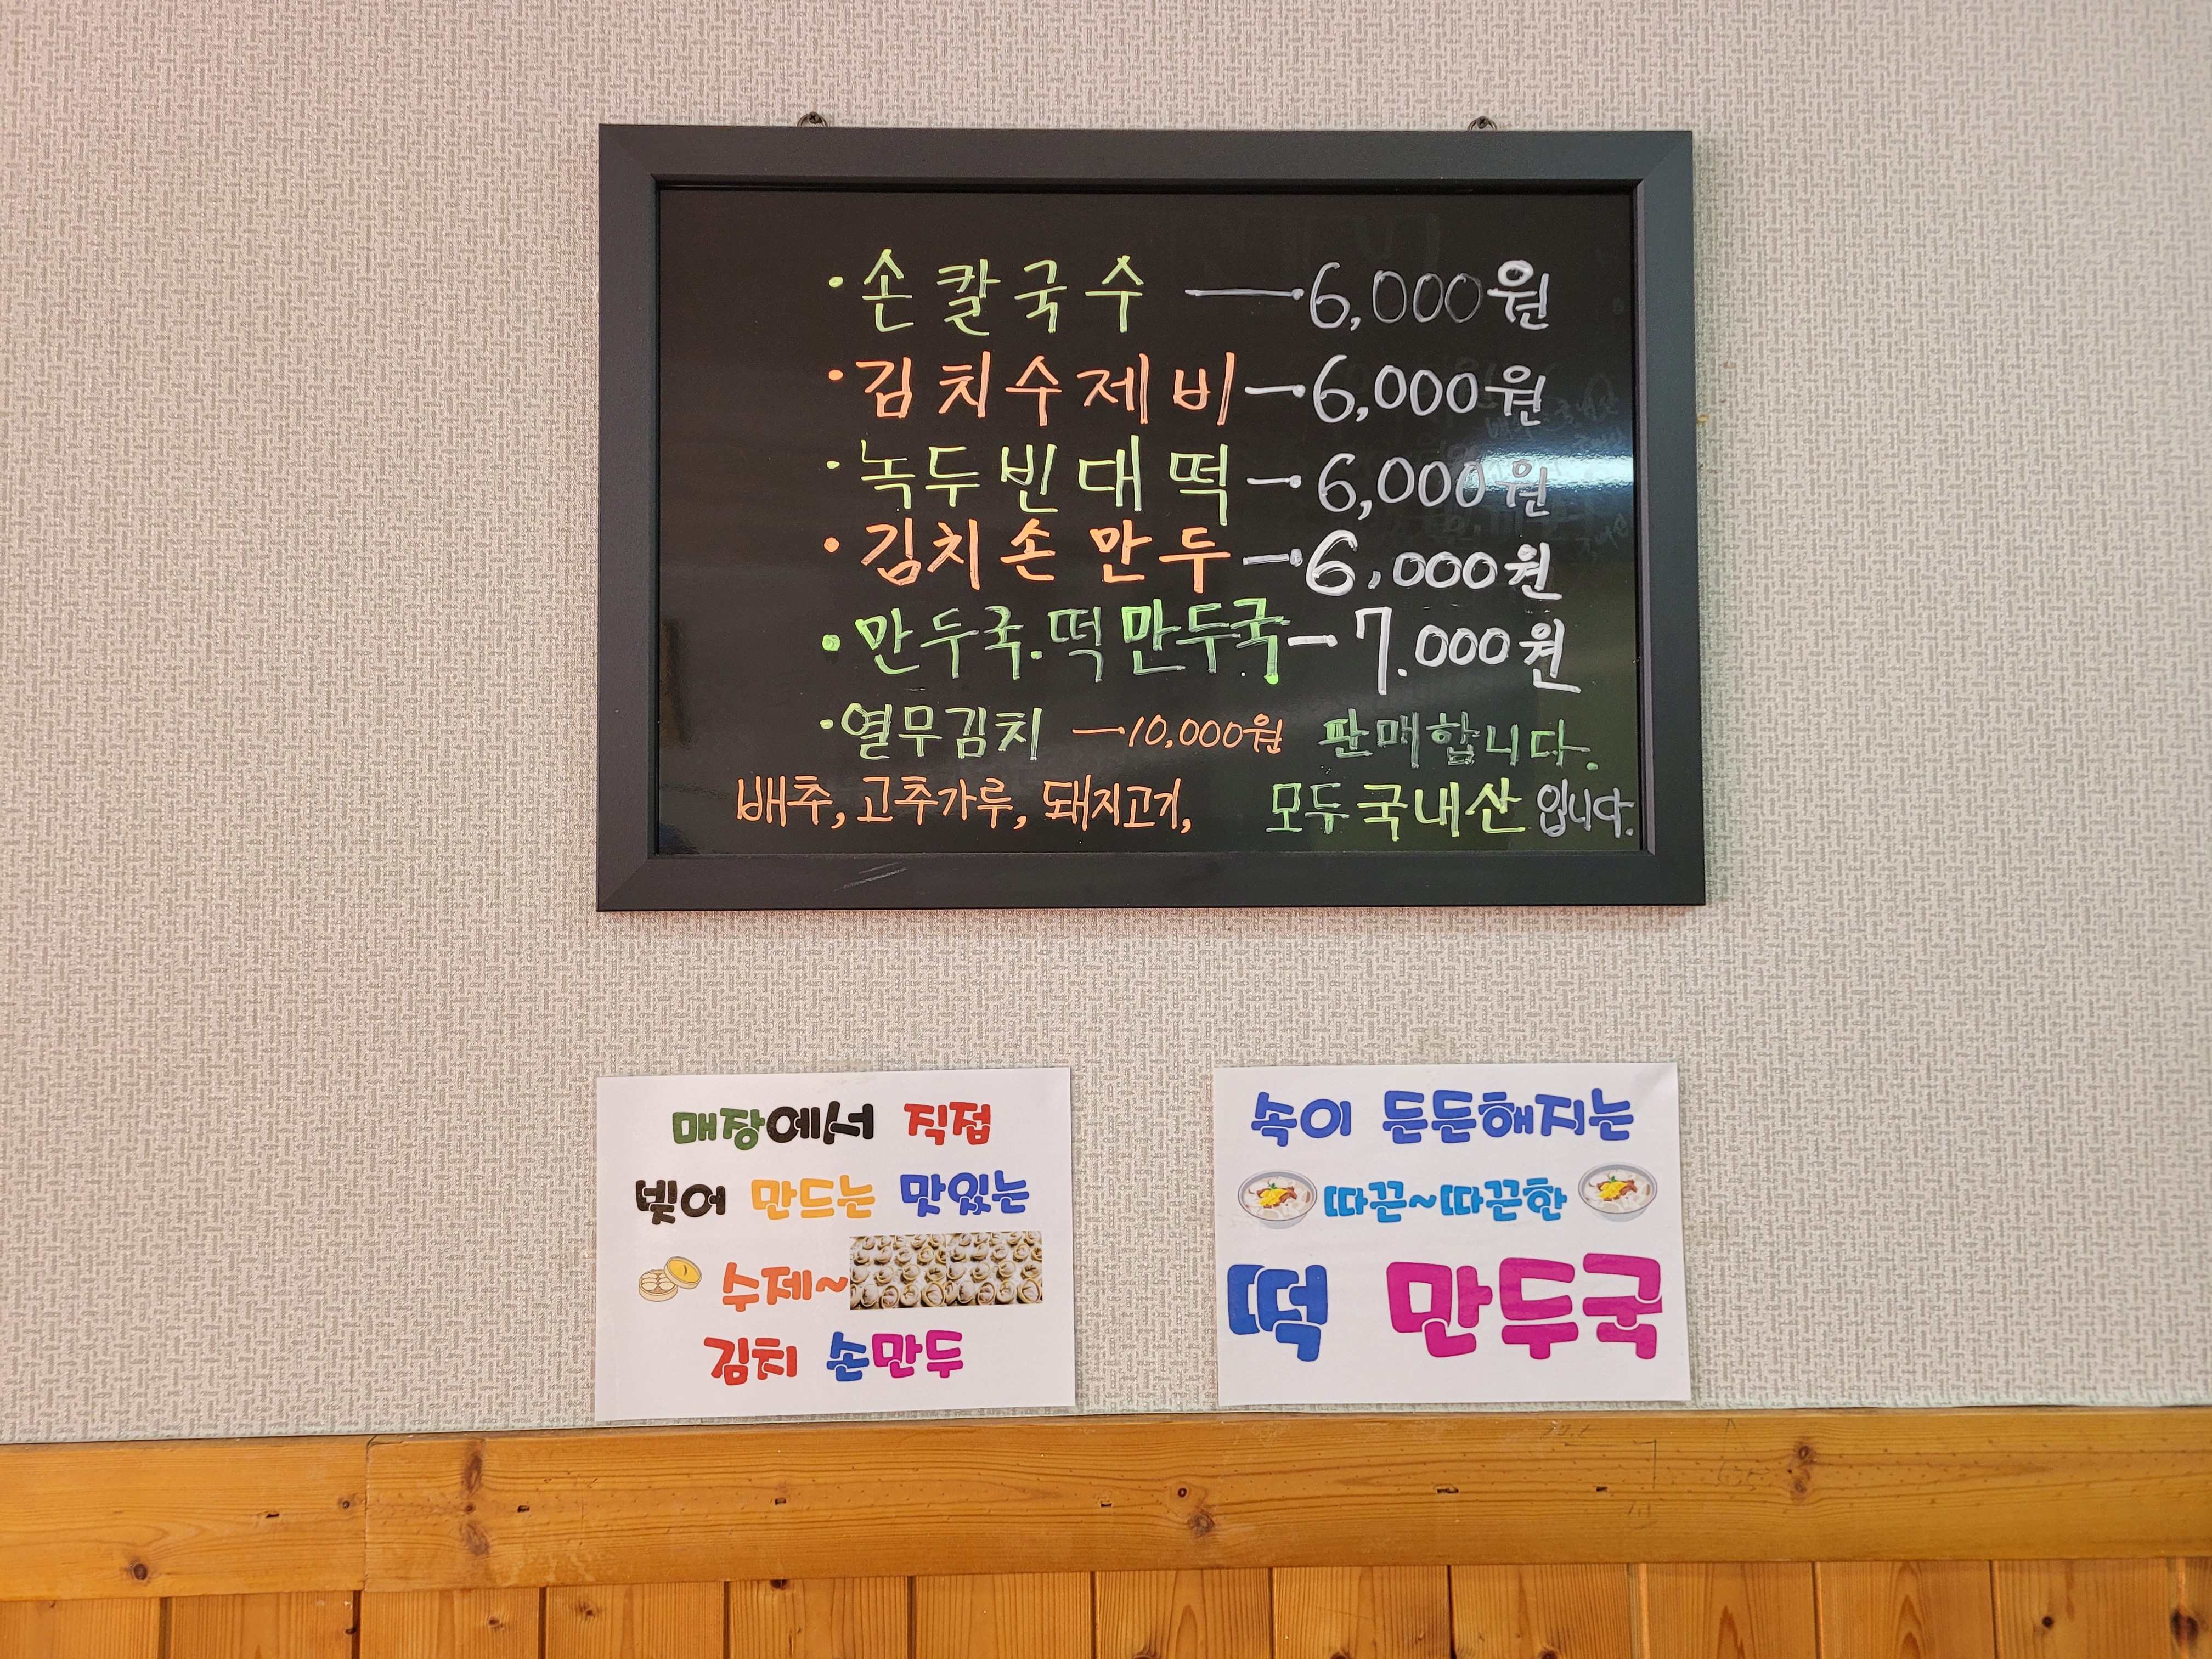 · 손칼국수 — 6,000원
· 김치수제비 — 6,000원
· 녹두빈대떡 — 6,000원
· 김치손만두 — 6,000원
· 만두국.떡만두국 - 7.000원
· 열무김치 — 10,000원 판매합니다.
배추, 고추가루, 돼지고기, 모두국내산입니다.
매장에서 직접
빚어 만드는 맛있는
수제~
김치 손만두
속이 든든해지는
따끈~따끈한
떡 만두국